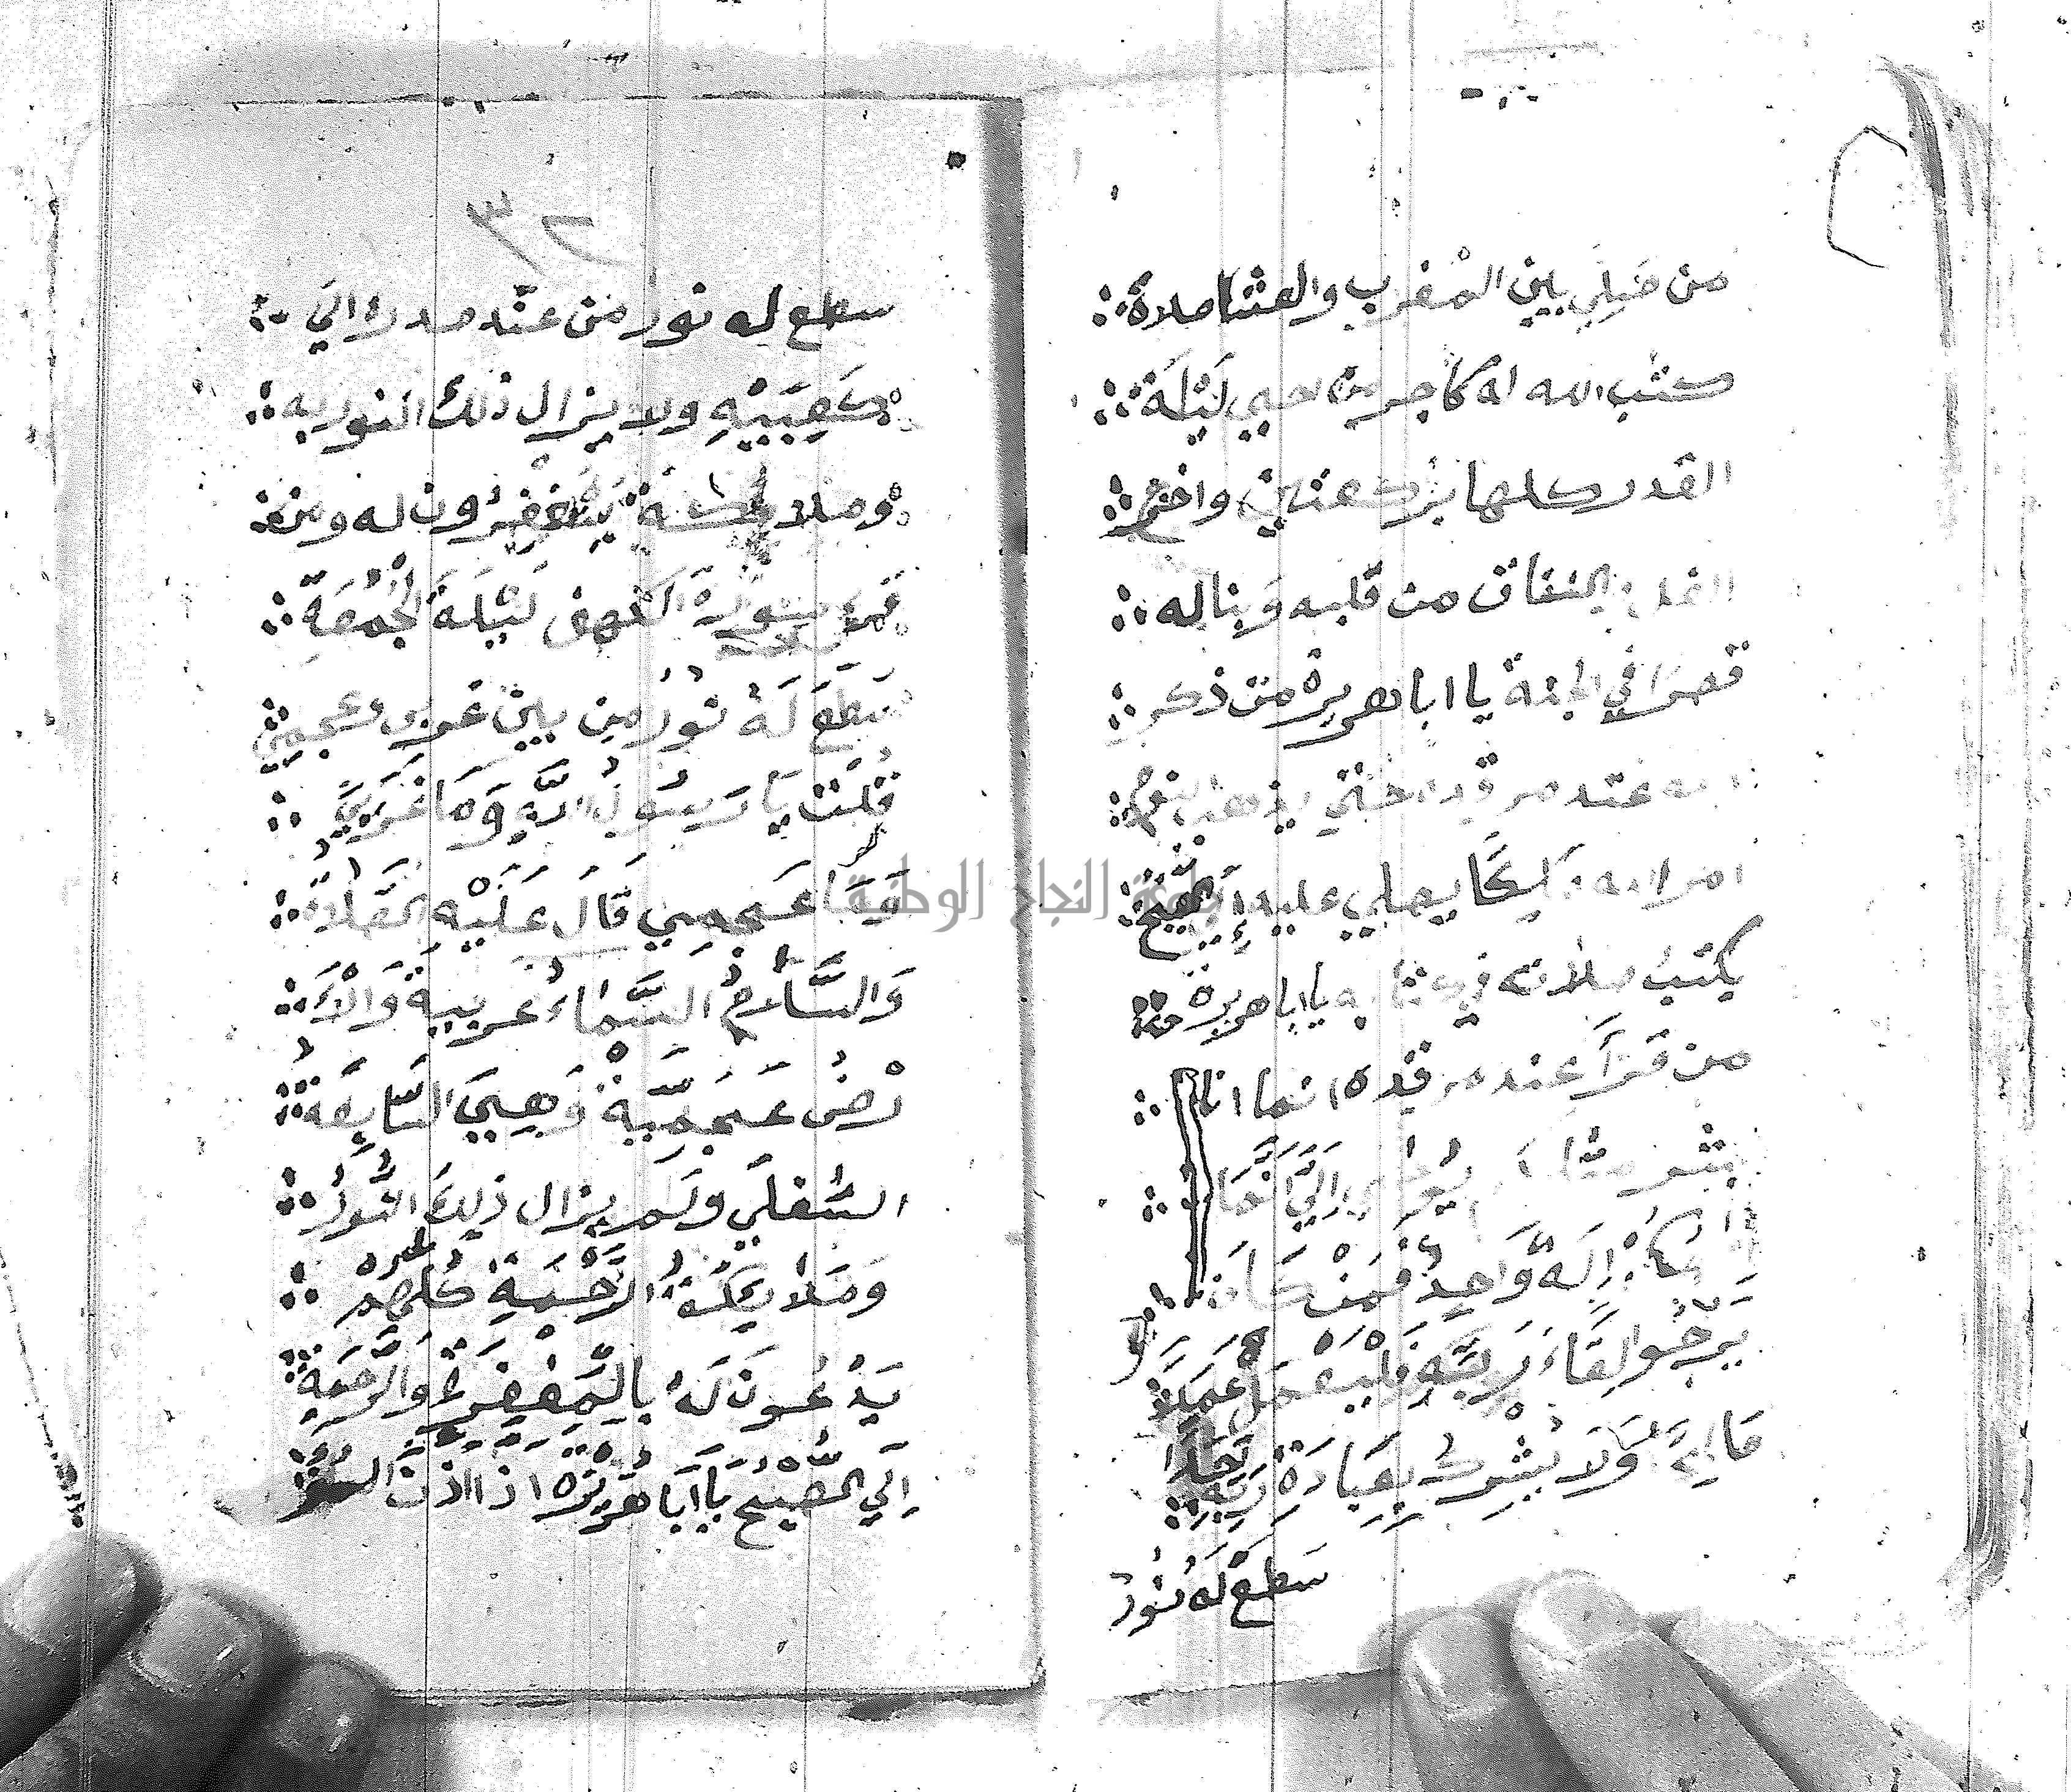 من صَلِي بين المْغرب والعشا صلاة
كتب الله له كاجر من احيي لَيْلَة
القدر كلها بركعتين واخرج
النفاق من قلبه وَبنا له
قصرا في الجنة يا ابا هريرة من ذكر
الله عند مرقده حتي يذهب النوم
امر الله ملكا يصلي عليه إلَي الصُّبْحْ
يكتب صلاته في يا ابا هريرة
من قرَأ عند مرقده انما انا
بشر يُوحَى إِلَيَّ أَنَّمَا
إِلَهٌ وَّاحِدٌ فَمَنْ كَانَ
يَرْجُو لِقَاءَ رَبِّهِ فَلْيَعْمَلْ عَمَلًا
صَالِحًا وَّلَا يُشْرِكْ بِعِبَادَةِ رَبِّهِ أَحَدًا
سَطَعَ لَهُ نُورٌ
٣٢
سطع له نور من عند صدره الَيَ
كَعِبَيْهِ ولا يزال ذلك النور به
وملايكة يَسْتَغْفِرُون له ومن
قرء سورة الكهف لَيْلَةَ الْجُمُعَةِ
سَطَعَ لَهُ نُورٌ مِن بين عَربي وعجمِي
قُلْت يَا رَسُولُ اللَّهِ وَمَا عَرَبِيُّ
وَمَا عَجمِي قَالَ عَلَيْهِ الصَّلَاةُ
وَالسَّلَامُ السَّمَاءُ عَرَبِيةٌ وَالْأَ
رْضُ عَجَمِيَّةٌ وَهِيَ السَّابِعَةُ
السُّفلَي ولَم يزال ذَلِكَ النُّورُ
وَمَلَايِكَةُ الرَّحْمَةِ كُلهُمْ
يَدْعُونَ لَهُ بِالْمَغْفِرَةِ وَالرَّحْمَةِ
إِلَي الصُّبْحْ يَا أَبَا هُرَيْرَة اذا أذَّنَ
جامعة النجاح الوطنية